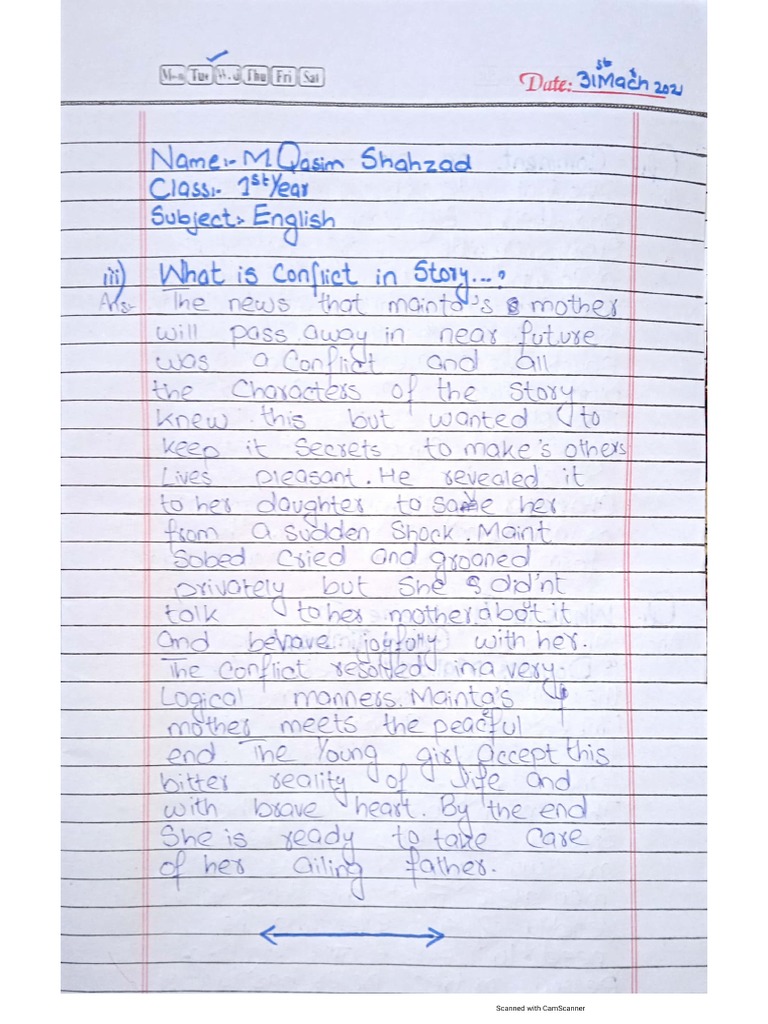 Mon Tue Wed Thu Fri Sat
Date: 31st March 2021
Name:- M Qasim Shahzad
Class:- 1st Year
Subject:- English
iii) What is Conflict in Story...?
Ans:- The news that mainta's mother
will pass away in near future
was a Conflict and all
the Characters of the Story
knew this but wanted to
keep it Secrets to make's others
Lives pleasant. He revealed it
to her daughter to save her
from a sudden Shock. Maint
Sobed Cried and groaned
privately but She did'nt
talk to her mother. about it
and behave joyfolly with her.
The Conflict resolved in a very
Logical manners. Mainta's
mother meets the peacful
end The Young girl accept this
bitter reality of life and
with brave heart. By the end
She is ready to take Care
of her ailing father.
Scanned with CamScanner